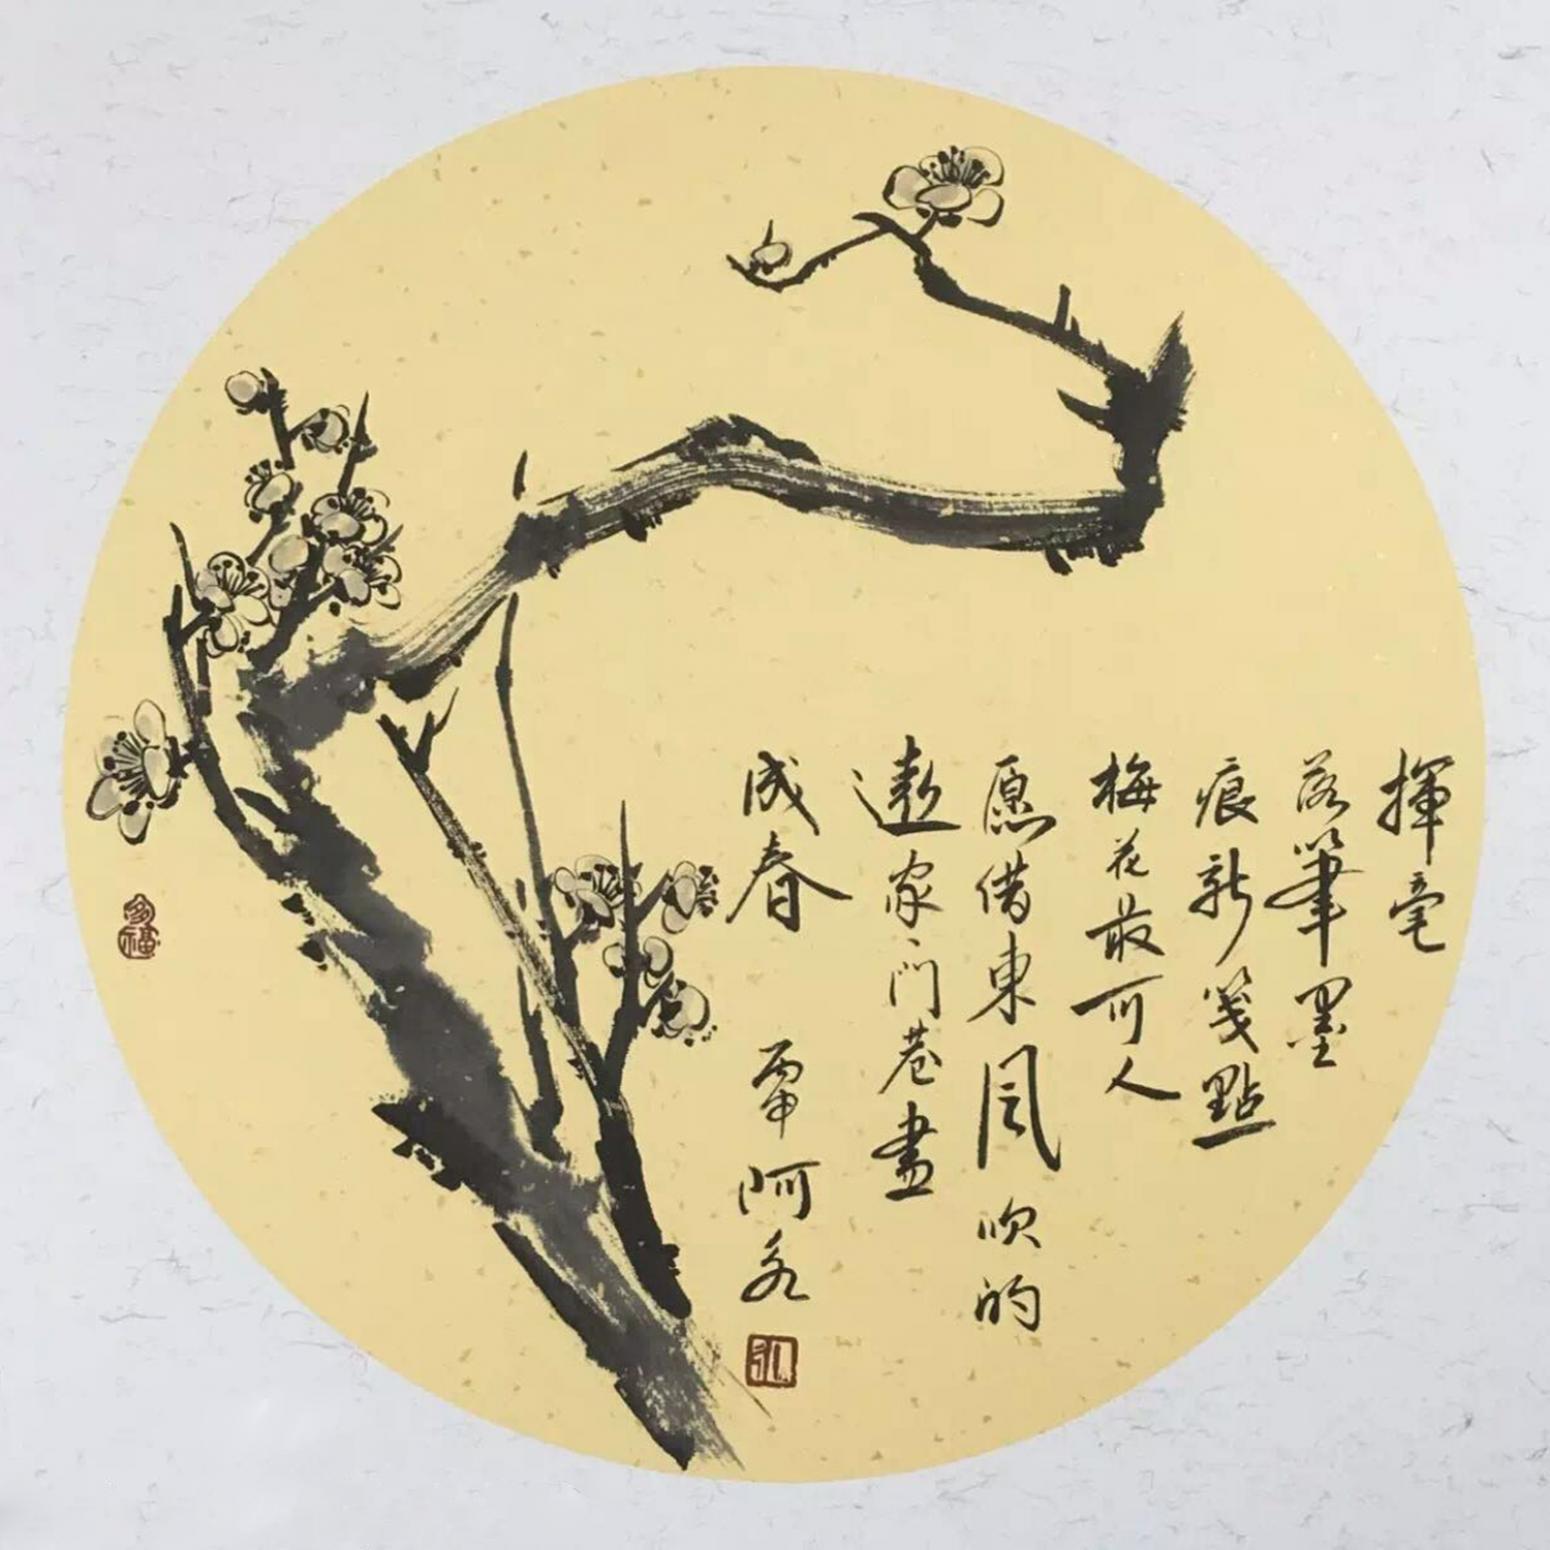 揮毫
落筆墨
痕新幾點
梅花最可人
愿借東風吹的
遠家門巷盡
成春 丙申 阿
多福